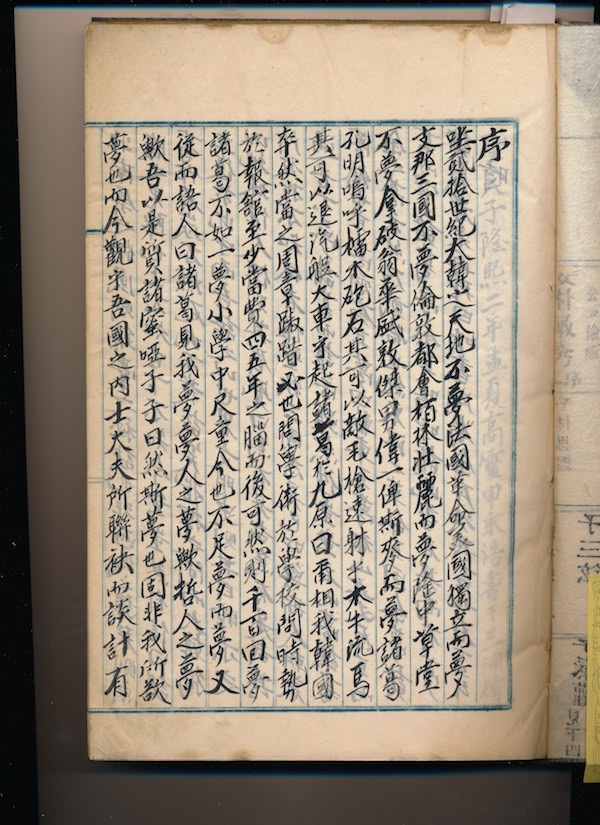 序
坐貳拾世紀大韓之天地不夢法國革命米國獨立而夢
支那三國不夢倫敦都會栢林壯麗而夢隆中草堂
不夢拿破翁華盛敦傑男偉一俾斯麥而夢諸葛
孔明嗚呼檑木砲石其可以敵毛槍速射乎木牛流馬
其可以追汽船大車乎起諸葛於九原曰爾相我韓國
卒然當之周章踧踖必也問學術於學校問時勢
於報館至少當費四五年之腦而後可然則千百回夢
諸葛不如一夢小學中尺童今也不足夢而夢又
從而語人曰諸葛見我夢夢人之夢歟哲人之夢
歟吾以是質諸蜜啞子子曰然斯夢也固非我所欲
夢也而今觀乎吾國之內士大夫所聯袂而談計有